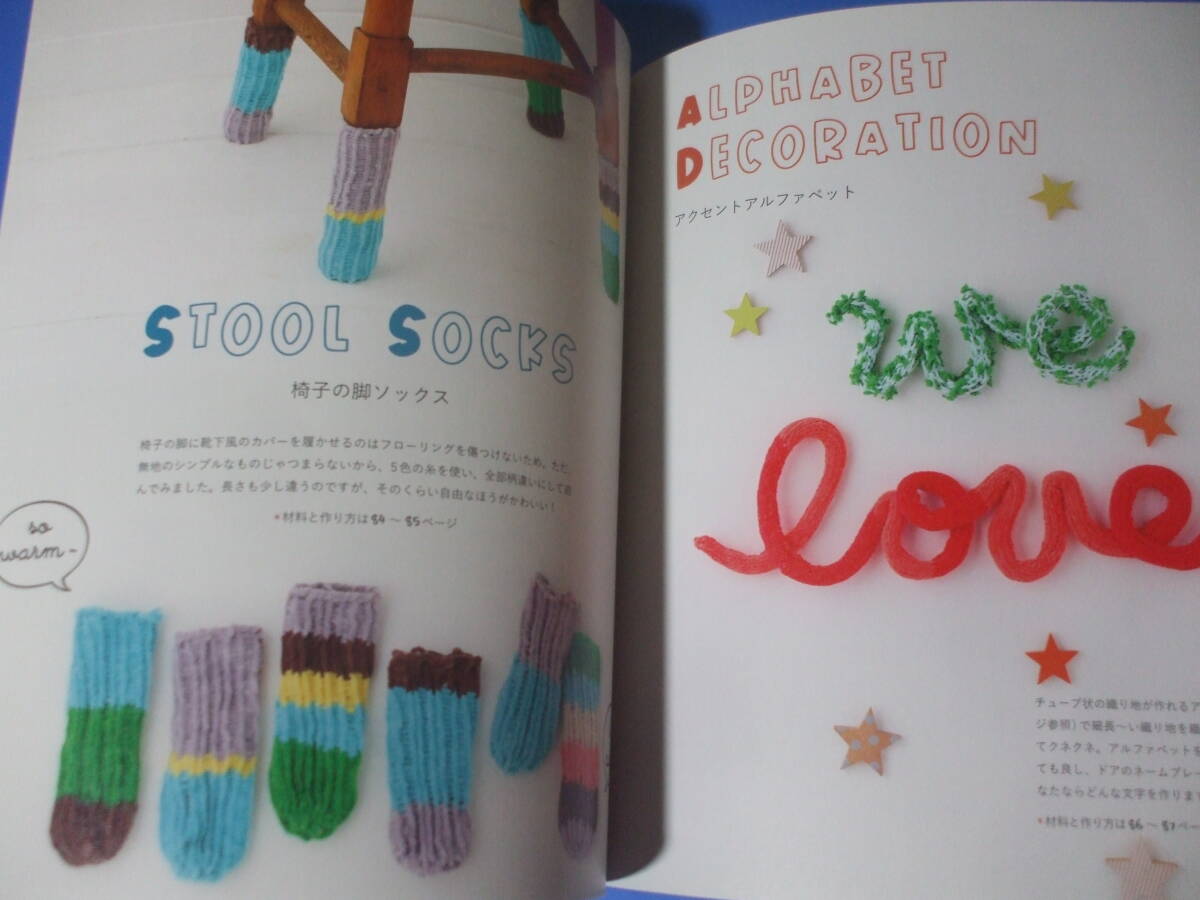 STOOL SOCKS
椅子の脚ソックス
椅子の脚に靴下風のカバーを履かせるのはフローリングを傷つけないため。ただ、
無地のシンプルなものじゃつまらないから、5色の糸を使い、全部柄違いにして遊
んでみました。長さも少し違うのですが、そのくらい自由なほうがかわいい！
*材料と作り方は84〜85ページ
so
warm-
ALPHABET
DECORATION
アクセントアルファベット
we
love
チューブ状の織り地が作れるア
ジ参照)で細長〜い織り地を編
てクネクネ。アルファベットを
ても良し、ドアのネームプレー
なたならどんな文字を作りま
*材料と作り方は86〜87ペー